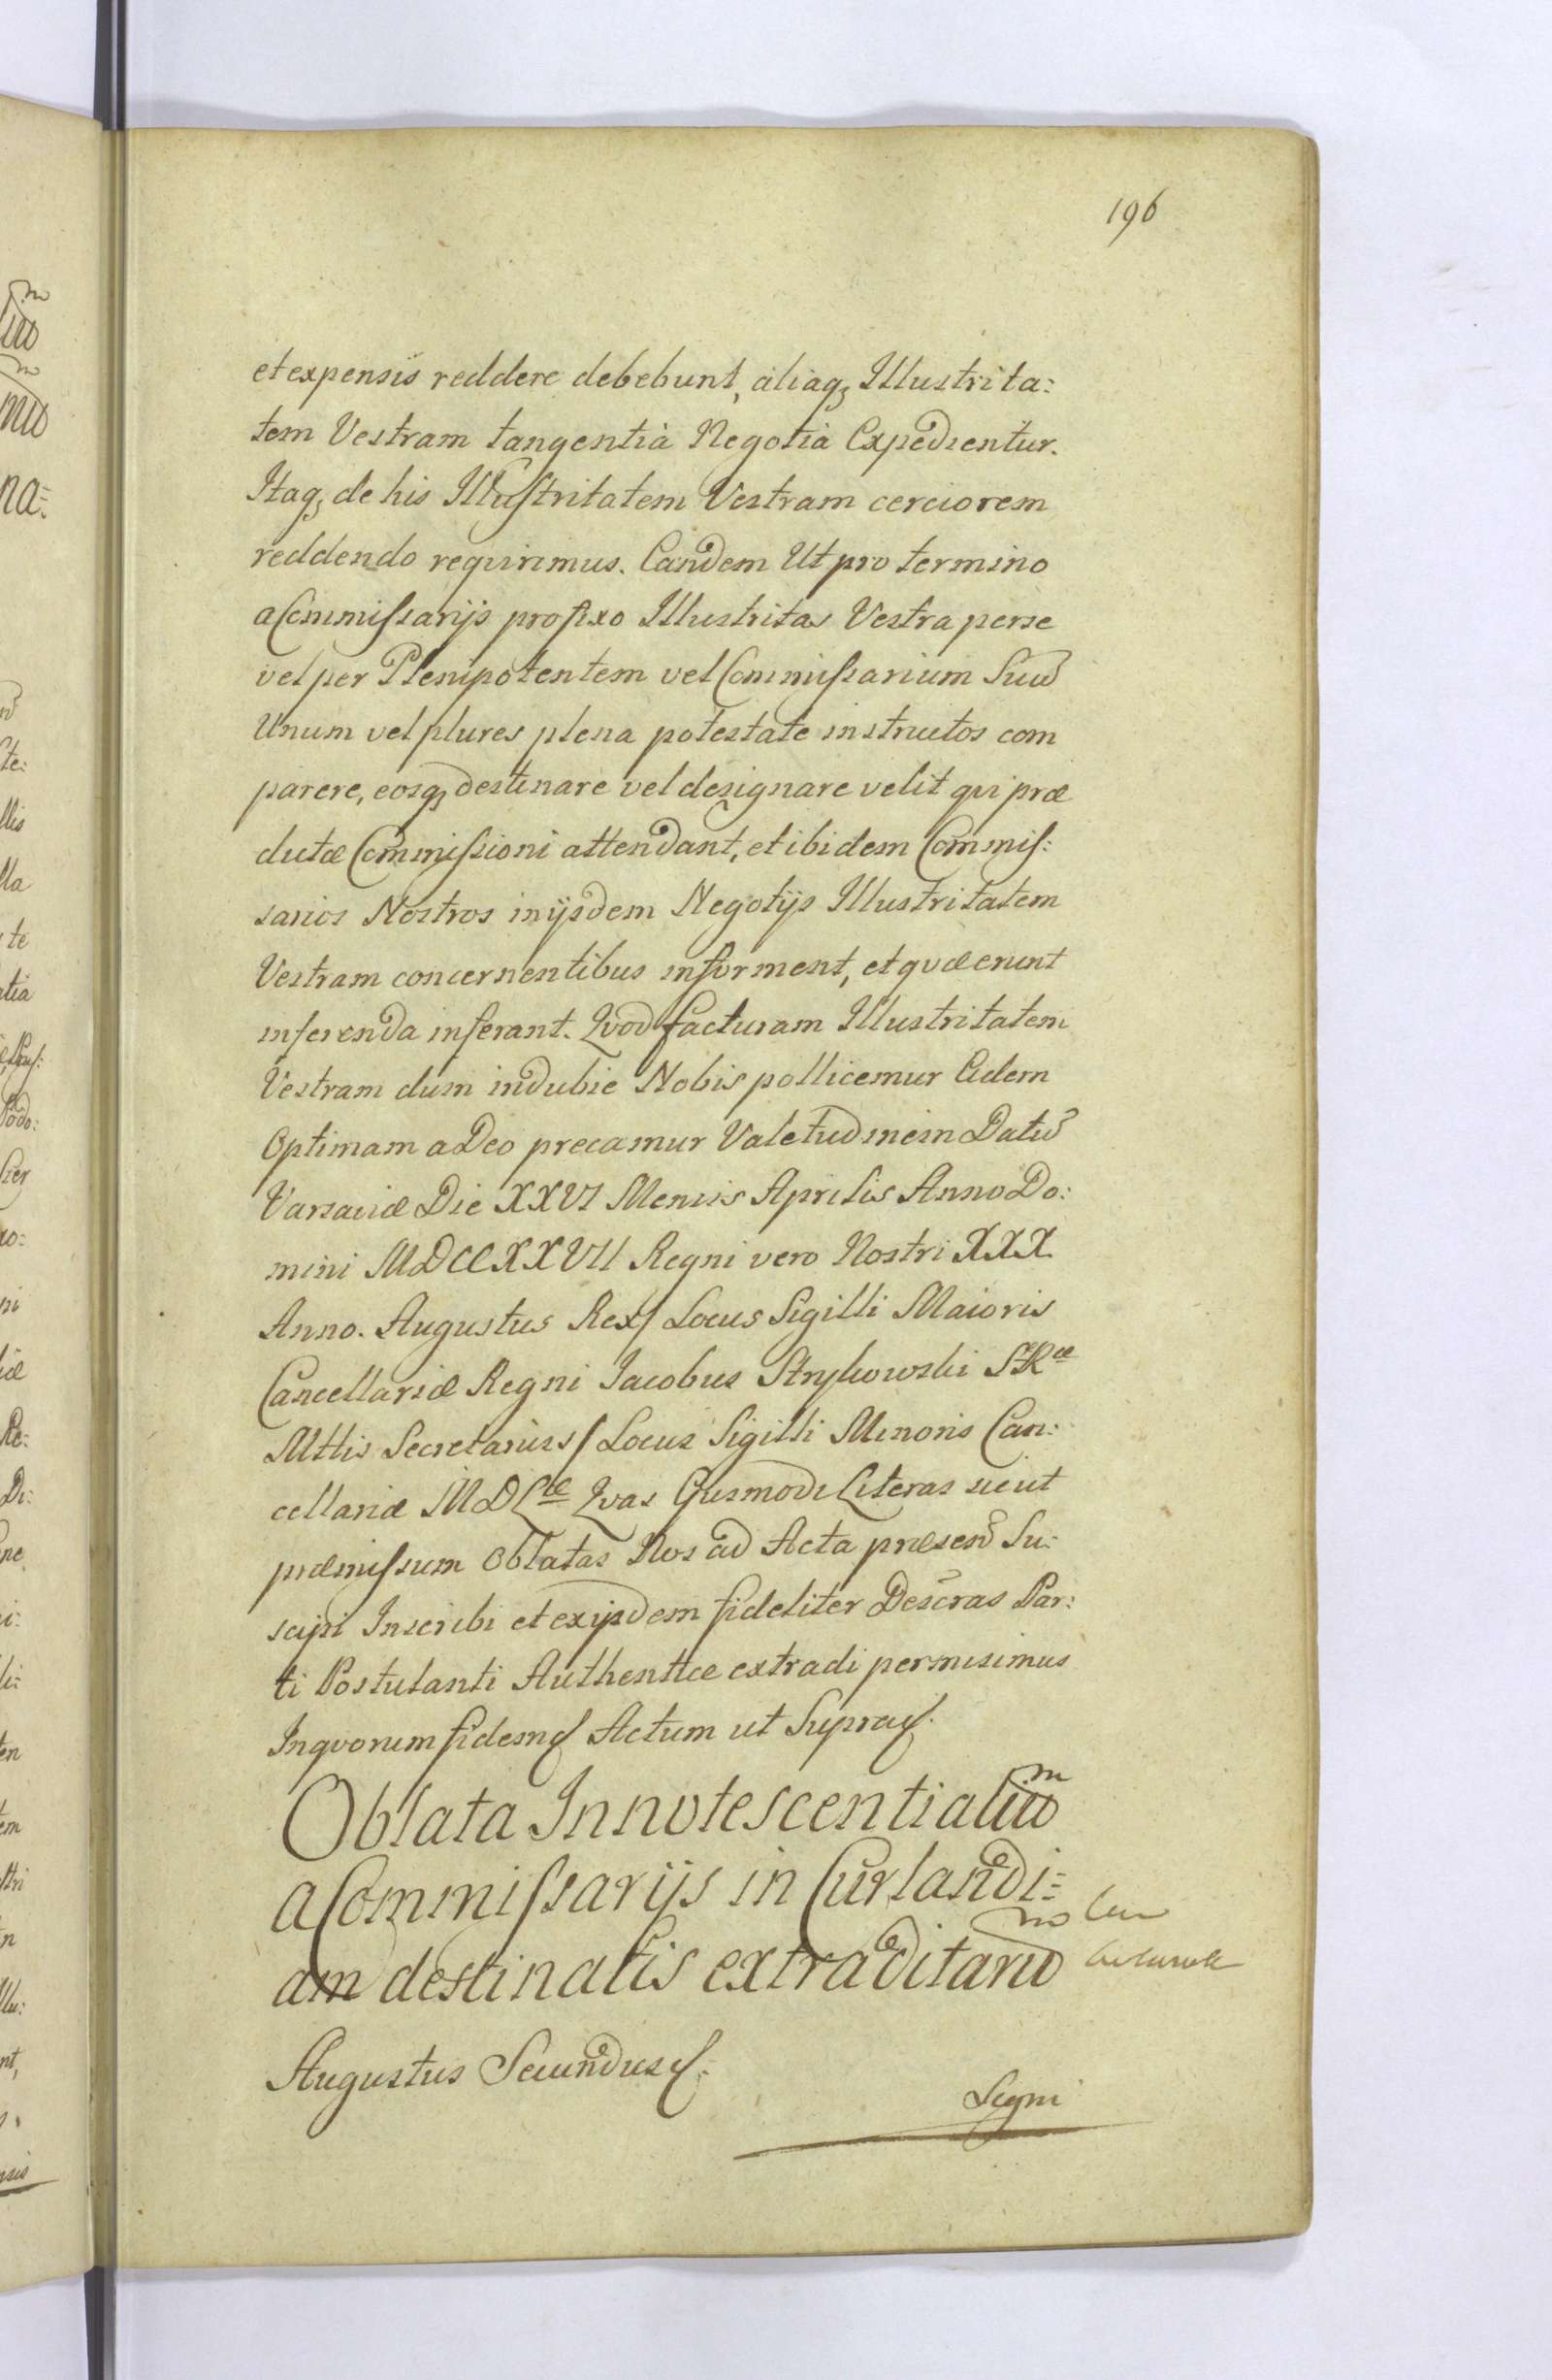 196
et expensis reddere debebunt, aliaq₃ Illustrita:
tem Vestram tangentia Negotia Expedientur.
Itaq₃ de his Illustritatem Vestram cerciorem
reddendo requirimus. Eandem Ut pro termino
a Commissarijs profixo Illustritas Vestra per se
vel per Plenipotentem vel Commissarium Suū
Unum vel plures plena potestate instructos com
parere, eosq₃ destinare vel designare velit qvi præ
dictæ Commissioni attendant, et ibidem Commis:
sarios Nostros in ijsdem Negotijs Illustritatem
Vestram concernentibus informent, et qvæ erunt
inferenda inferant. Qvod facturam Illustritatem
Vestram dum indubie Nobis pollicemur Eidem
Optimam a Deo precamur Valetudinem Datū
Varsaviæ Die XXVI Mensis Aprilis Anno Do:
mini MDCCXXVII Regni vero Nostri XXX
Anno. Augustus Rex/ Locus Sigilli Maioris
Cancellariæ Regni Iacobus Strykowski SRæ
Mttis Secretarius/ Locus Sigilli Minoris Can:
cellariæ MDLæ Qvas Ejusmodi Literas sicut
præmissum Oblatas Nos ad Acta præsen̄ Su:
scipi Inscribi et ex ijsdem fideliter Descras Par:
ti Postulanti Authenttce extradi permisimus
In qvorum fidem Actum ut Supra
Oblata Innotescentialiūm
a Commissarijs in Curlandi:
am destinatis extraditarū
Augustus Secundus
Segni